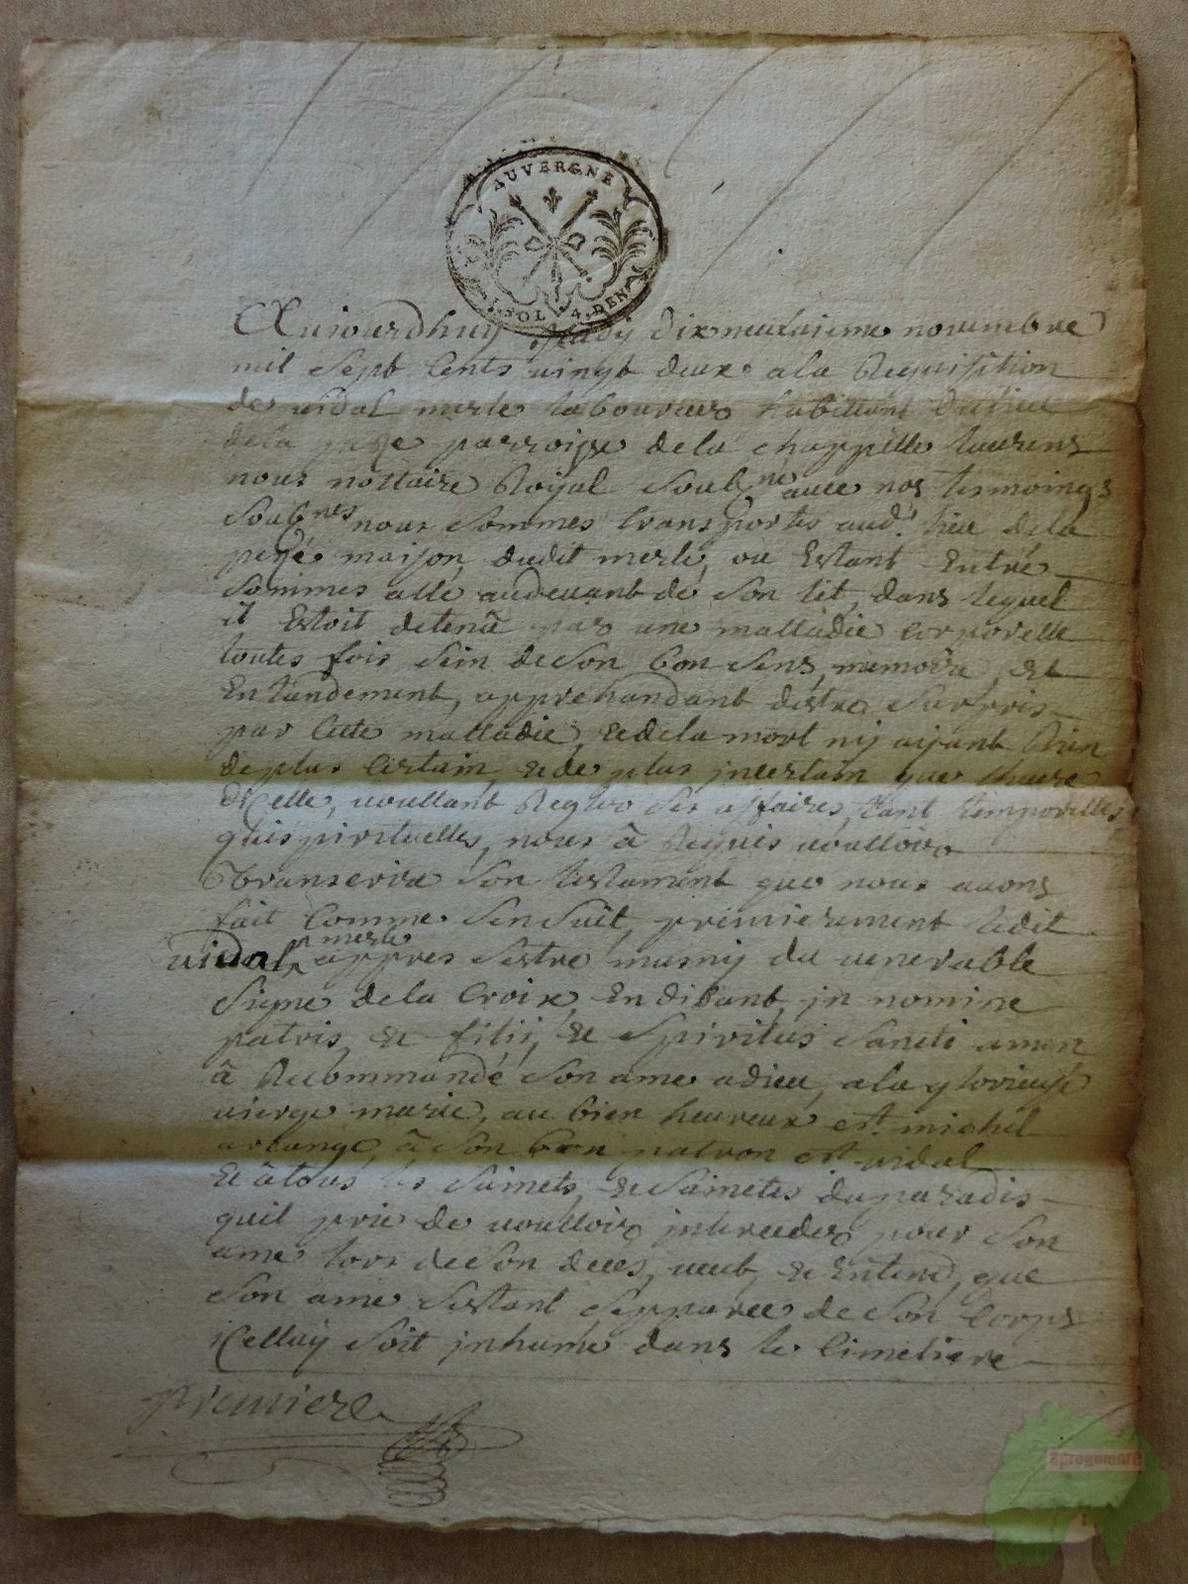 AUVERGNE
SOL 4. DEN
Aujourdhuy dixneufvieme novembre
mil sept cents vingt deux a la requisition
de vidal merle laboureur habittant du lieu
de la parroisse de la chappelle laurens
nous nottaire Royal soubzné avec nos tesmoings
soubznes nous sommes transportes aud. lieu de la
maison dudit merle, ou Estant Entré
sommes allé audevant de son lit, dans lequel
il Estoit detenu par une malladie corporelle
toutes fois sein de son bon sens, memoire, et
Entandement, apprehandant destre surpris
par cette malladie, & de la mort ny ayant Rien
de plus certain, & de plus jncertain que lheure
dicelle, voullant Regler ses affaires, tant temporelles,
quispirituelles, nous à Requis voulloir
transcrire son testament que nous avons
fait comme sen suit, premierement ledit
vidal merle appres sestre muny du venerable
signe de la Croix, En disant, jn nomine
patris, & filii, & spiritus sancti amen
à Recommandé son ame a dieu, a la glorieuse
vierge marie, au bien heureux st. michel
archange, à son bon patron st. vidal
& à tous les saincts, & sainctes du paradis
quil prie de voulloir jnterceder pour son
ame lors de son deces, veut, & Entend, que
son ame sestant sepparee de son Corps
jcelluy soit jnhume dans le Cimetiere
premiere